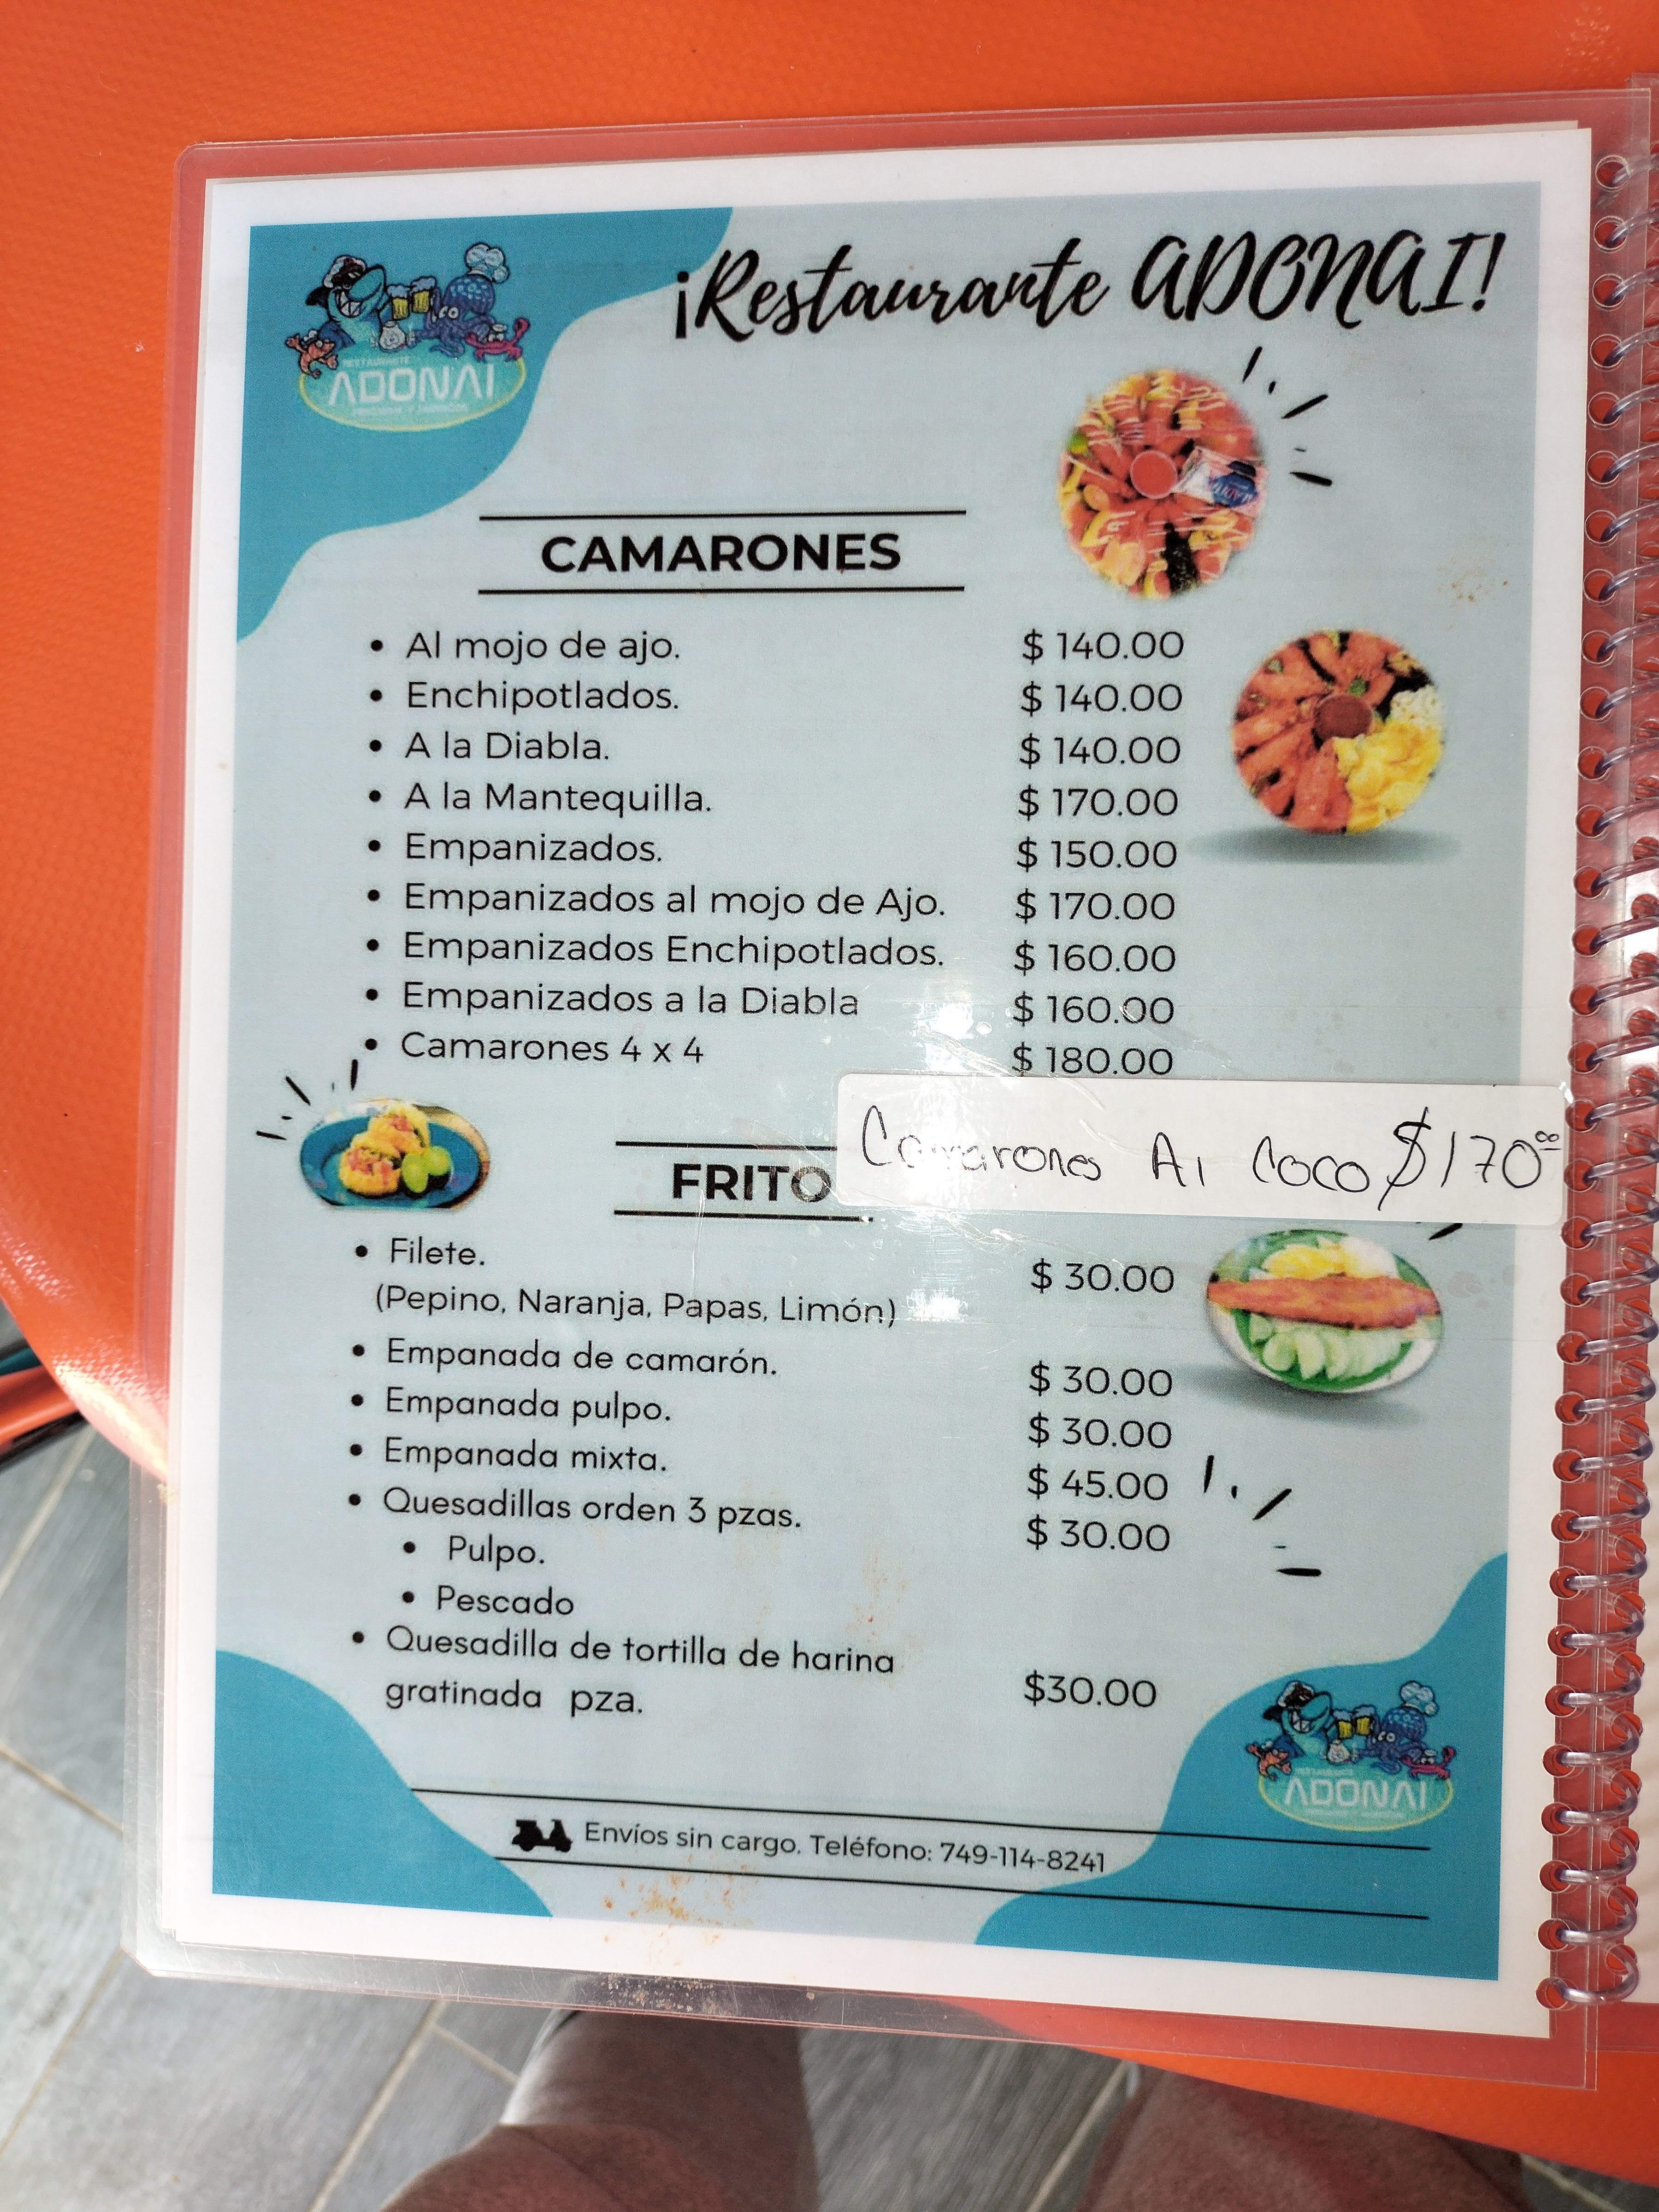 ¡Restaurante ADONAI!
RESTAURANTE
ADONAI
CAMARONES
• Al mojo de ajo. $ 140.00
• Enchipotlados. $ 140.00
• A la Diabla. $ 140.00
• A la Mantequilla. $ 170.00
• Empanizados. $ 150.00
• Empanizados al mojo de Ajo. $ 170.00
• Empanizados Enchipotlados. $ 160.00
• Empanizados a la Diabla $ 160.00
• Camarones 4 x 4 $ 180.00
Camarones Al Coco $170.00
FRITO
• Filete. $ 30.00
(Pepino, Naranja, Papas, Limón)
• Empanada de camarón. $ 30.00
• Empanada pulpo. $ 30.00
• Empanada mixta. $ 45.00
• Quesadillas orden 3 pzas. $ 30.00
• Pulpo.
• Pescado
• Quesadilla de tortilla de harina
gratinada pza. $30.00
ADONAI
Envíos sin cargo. Teléfono: 749-114-8241